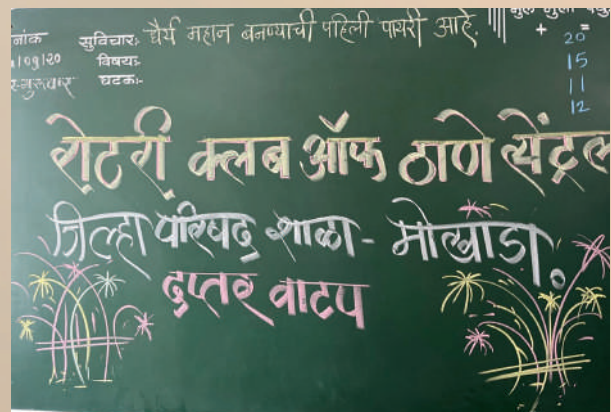 सुविचारः धैर्य महान बनण्याची पहिली पायरी आहे.
नांक
/09/20
विषयः
गुरुवार
घटकः-
+ =
20
15
11
12
रोटरी क्लब ऑफ ठाणे सेंट्रल
जिल्हा परिषद शाळा - मोखाडा.
दप्तर वाटप